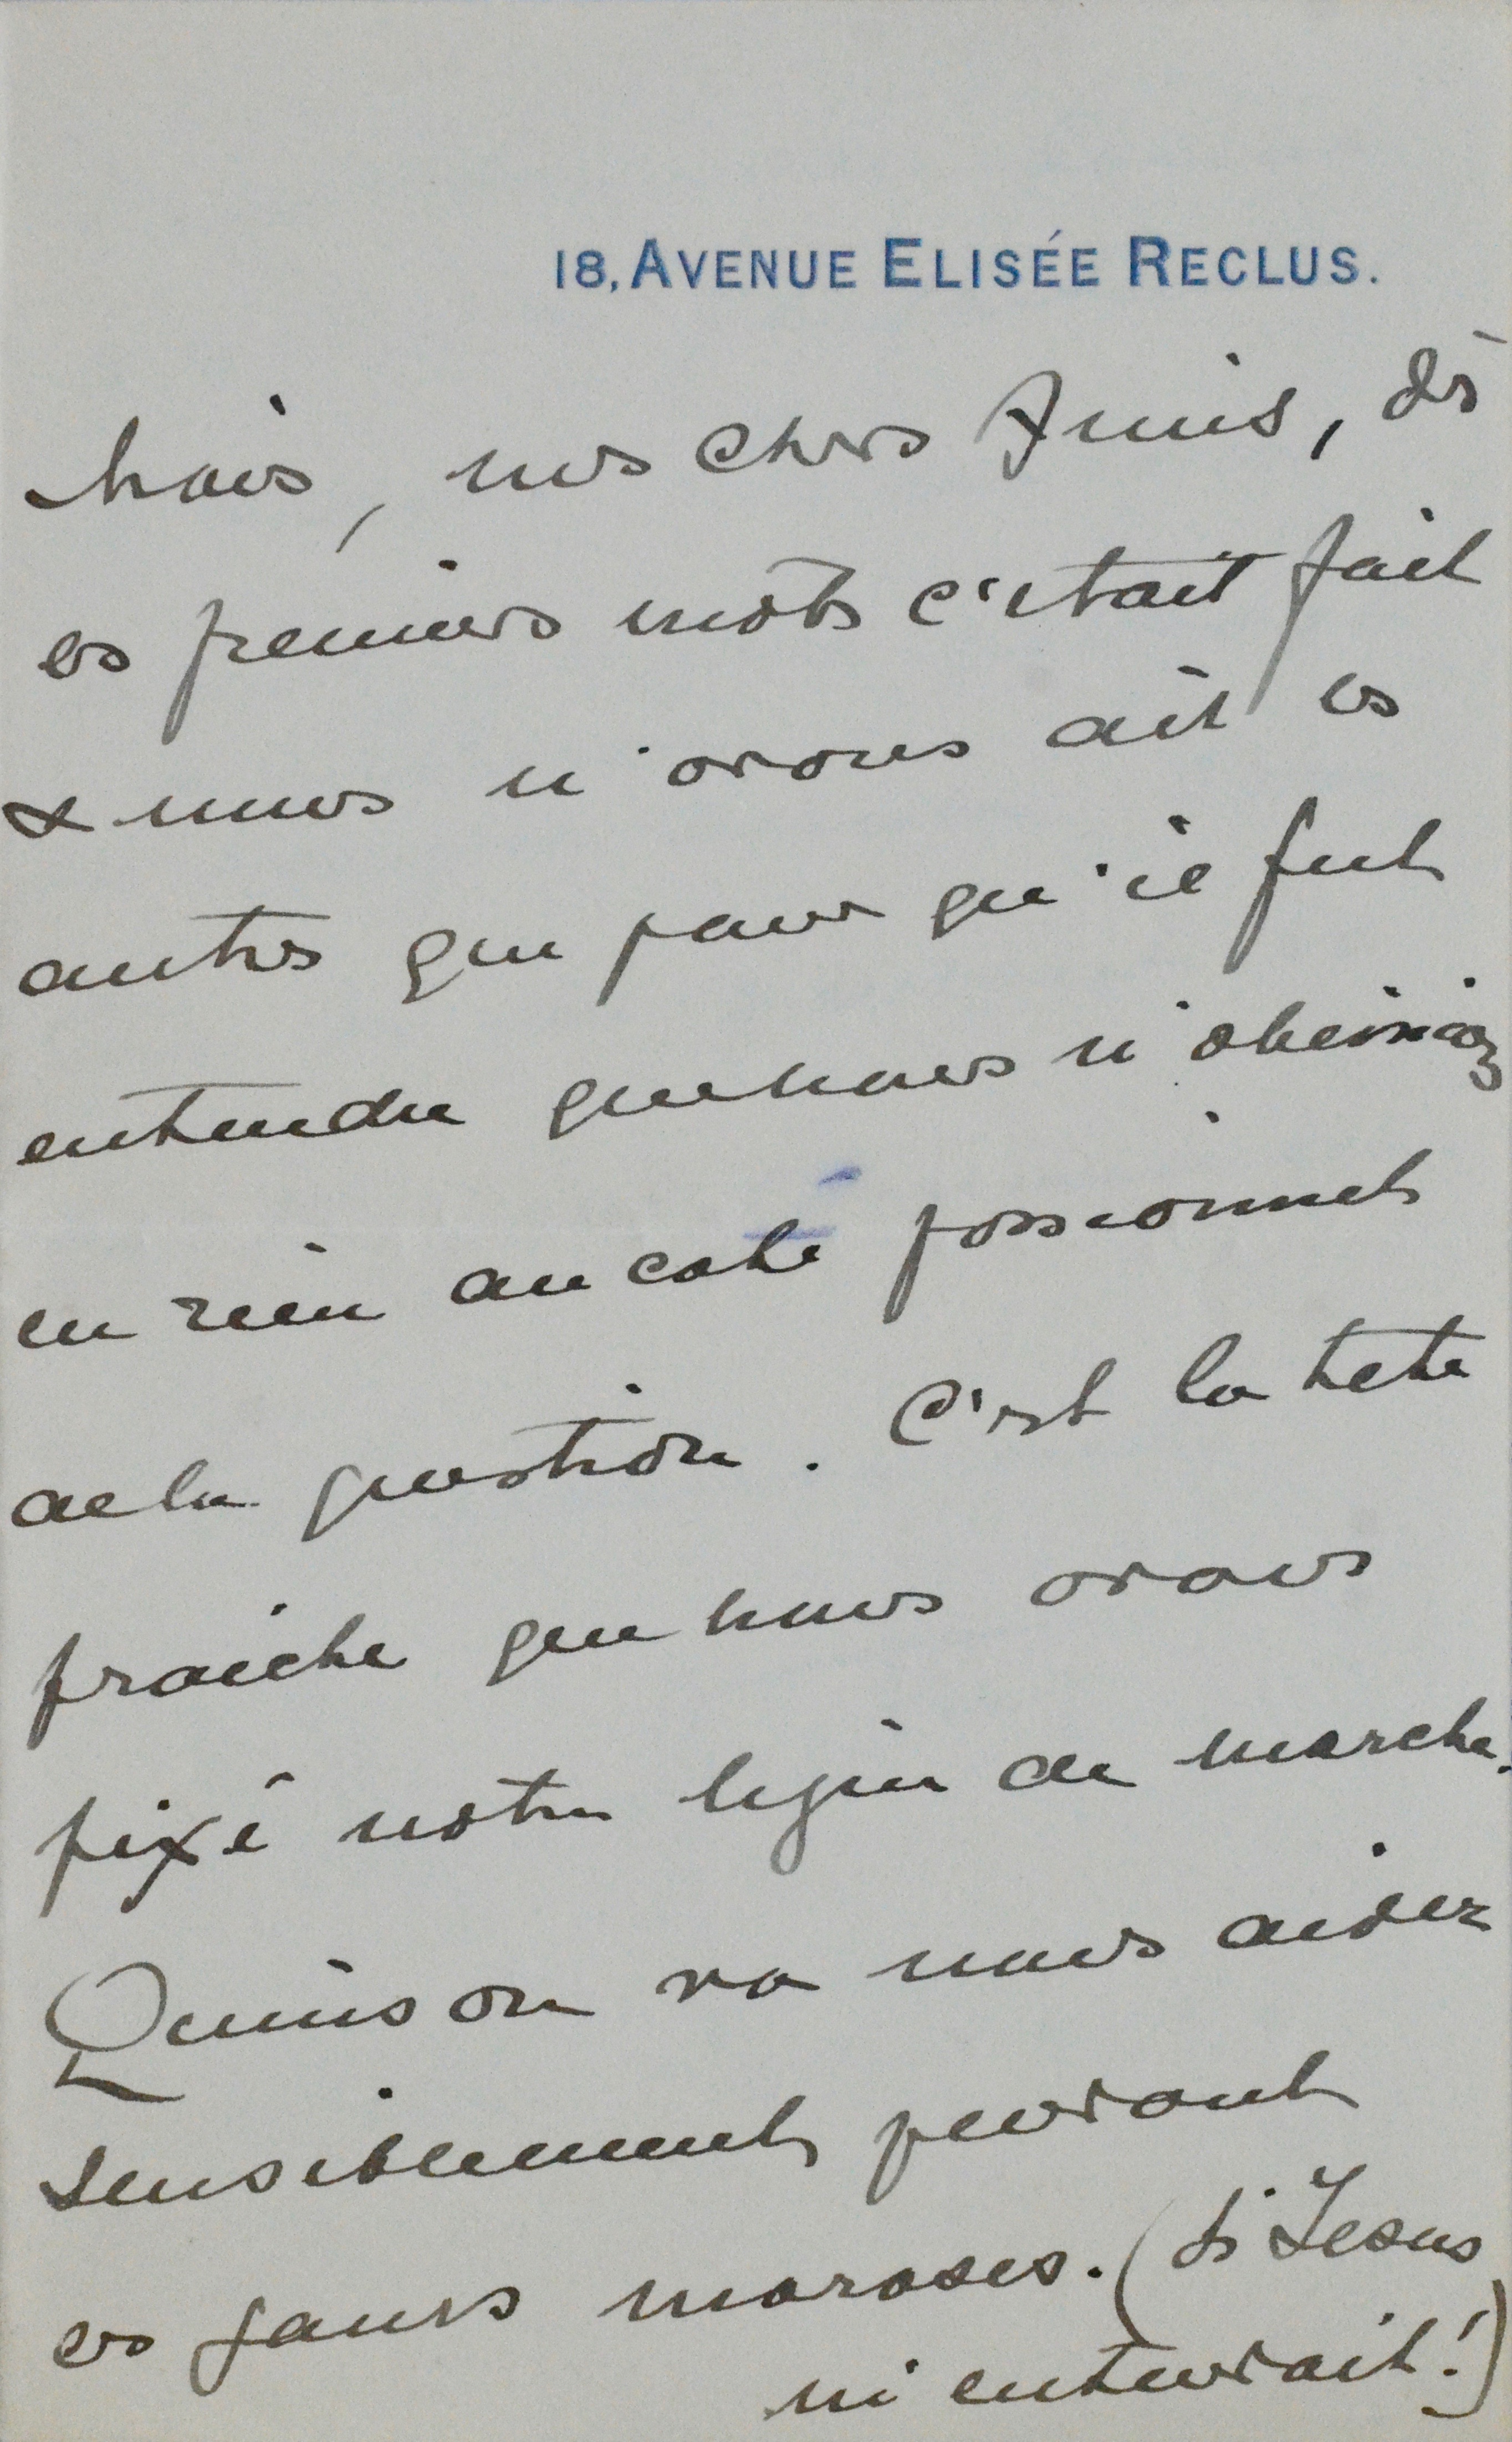 18, AVENUE ELISÉE RECLUS.
Mais, nos chers Amis, dès
les premiers mots c'était fait
& nous n'avons dit les
autres que pour qu'il fut
entendu que nous n'obeissions
en rien au coté passionnel
de la question. C'est la tete
fraiche que nous avons
fixé notre ligne de marche.
Quinson va nous aider
sensiblement pendant
les jours moroses. (Si Jesus
m'entendait!)